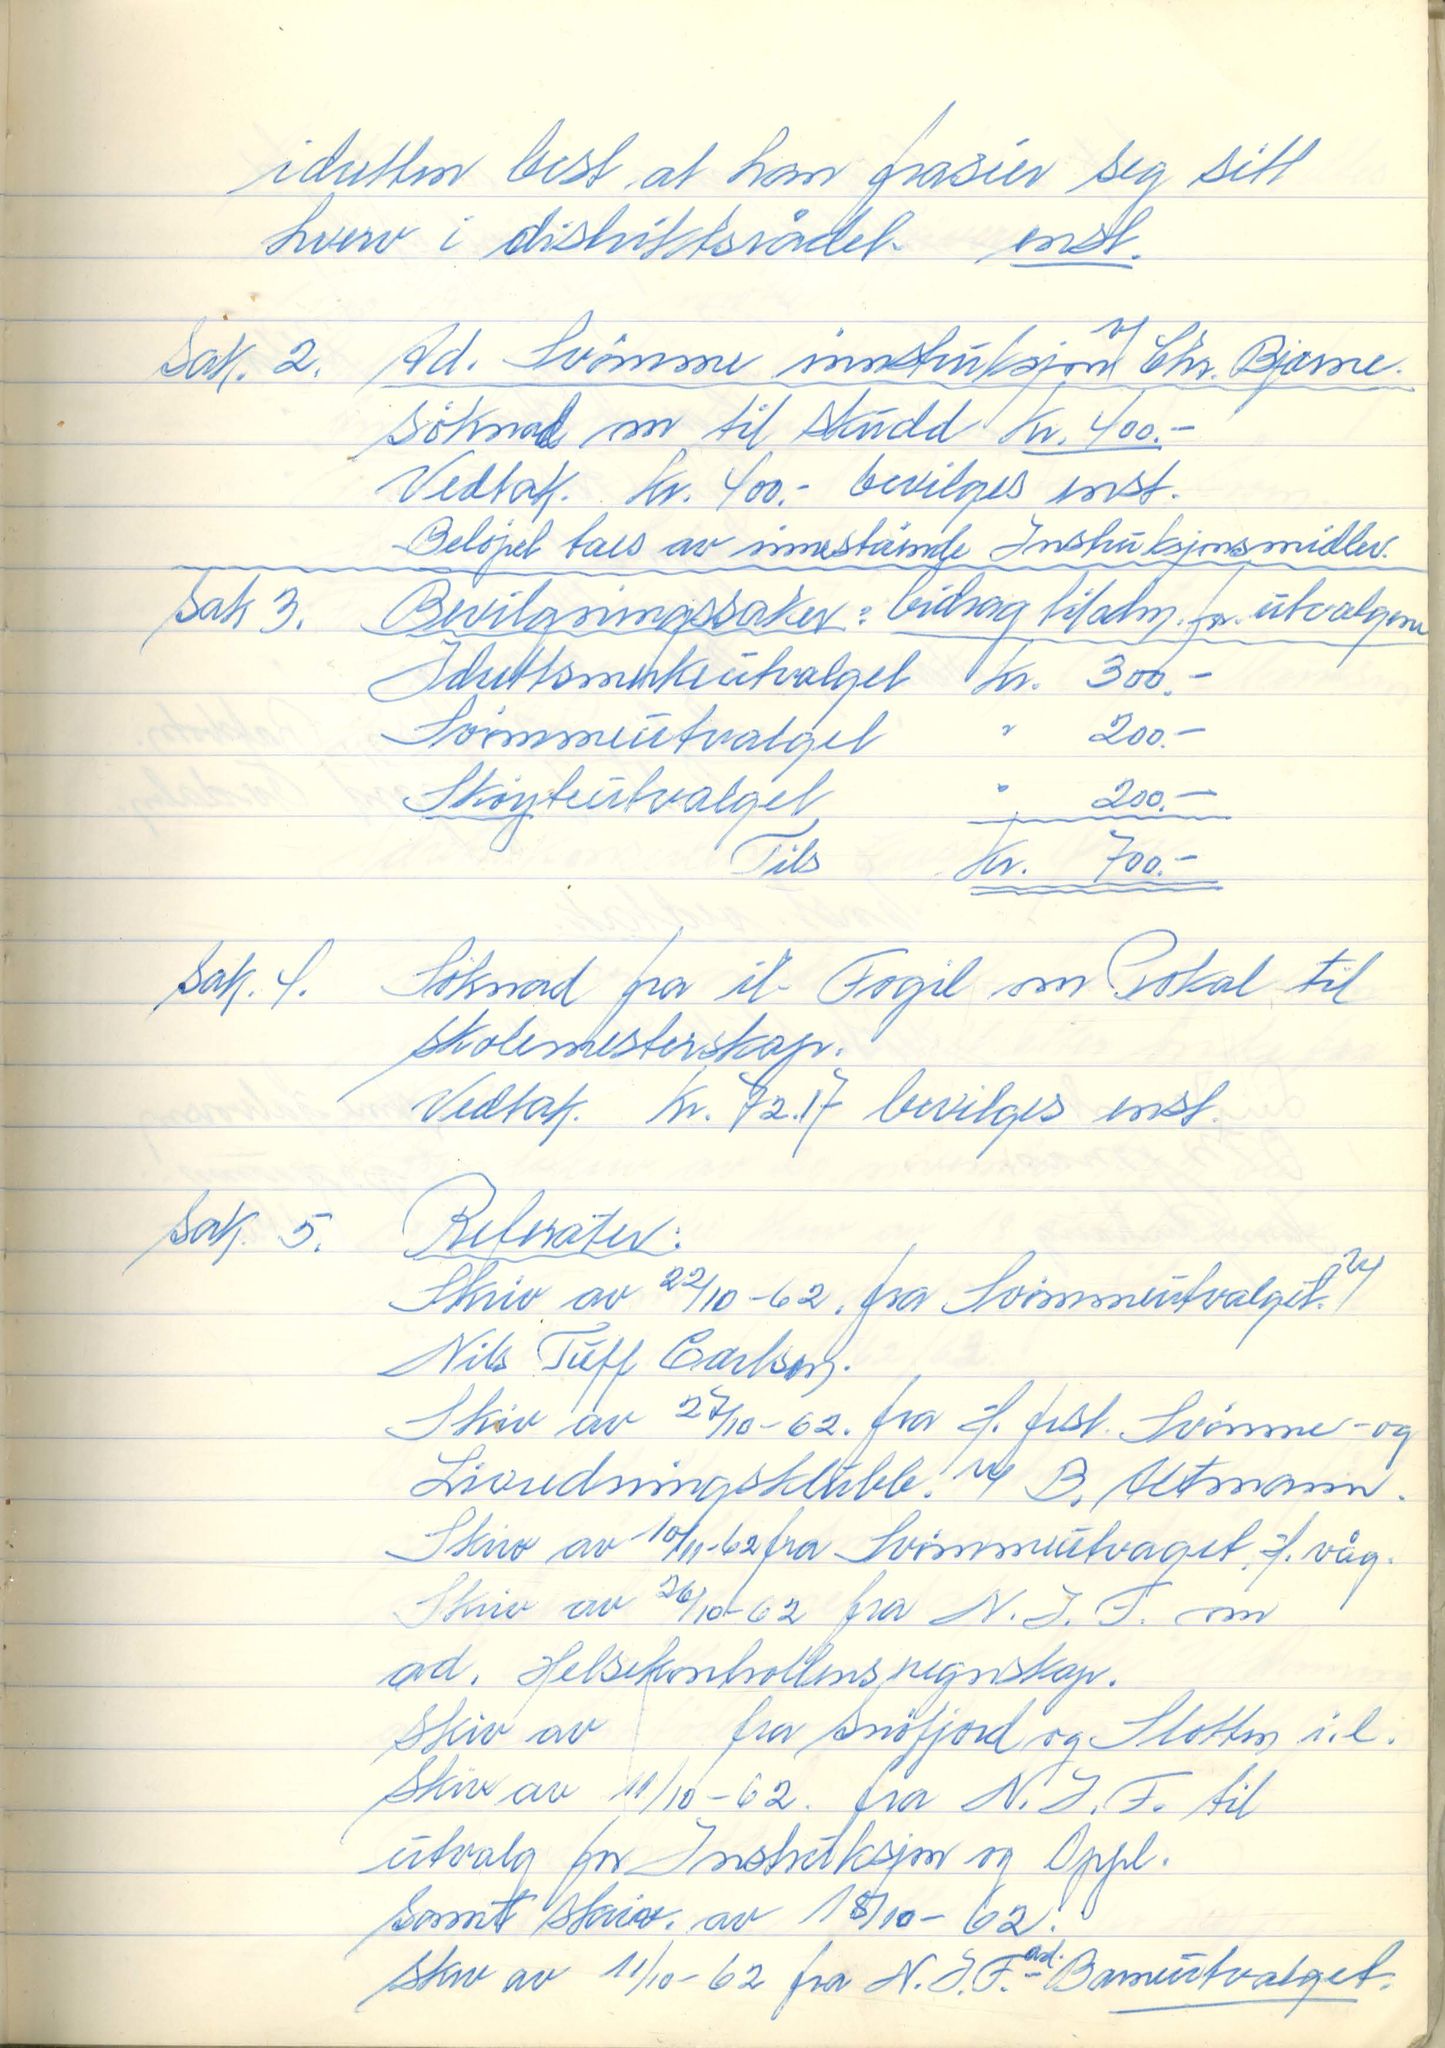 idretten best at han frasier seg sitt
hverv i distriktsrådet. enst.
Sak. 2. Ad. Svømme instruksjon v/ Chr. Bjarne.
Søknad om tilskudd kr. 400.-
Vedtak. kr. 400.- bevilges enst.
Beløpet taes av innestående Instruksjonsmidler.
Sak 3. Bevilgningssaker: bidrag til adm. for utvalgene
Idrettsmerkeutvalget kr. 300.-
Svømmeutvalget " 200.-
Skøyteutvalget " 200.-
Tils kr. 700.-
Sak. 4. Søknad fra il- Fogil om Pokal til
skolemesterskap.
Vedtak. Kr. 72.17 bevilges enst.
Sak. 5. Referater:
Skriv av 22/10-62. fra Svømmeutvalget. v/
Nils Tuff Carlsen.
Skriv av 27/10-62. fra H. fest. Svømme- og
Livredningsklubb. v/ B. Altmann.
Skriv av 10/11-62 fra Svømmeutvaget, H. våg.
Skriv av 26/10-62 fra N. I. F. om
ad. Helsekontrollens regnskap.
Skriv av fra Snøfjord og Slotten i.l.
Skriv av 11/10-62. fra N. I. F. til
utvalg for Instruksjon og Oppl.
samt skriv. av 18/10-62.
Skriv av 11/10-62 fra N. I. F. ad. - Barneutvalget.